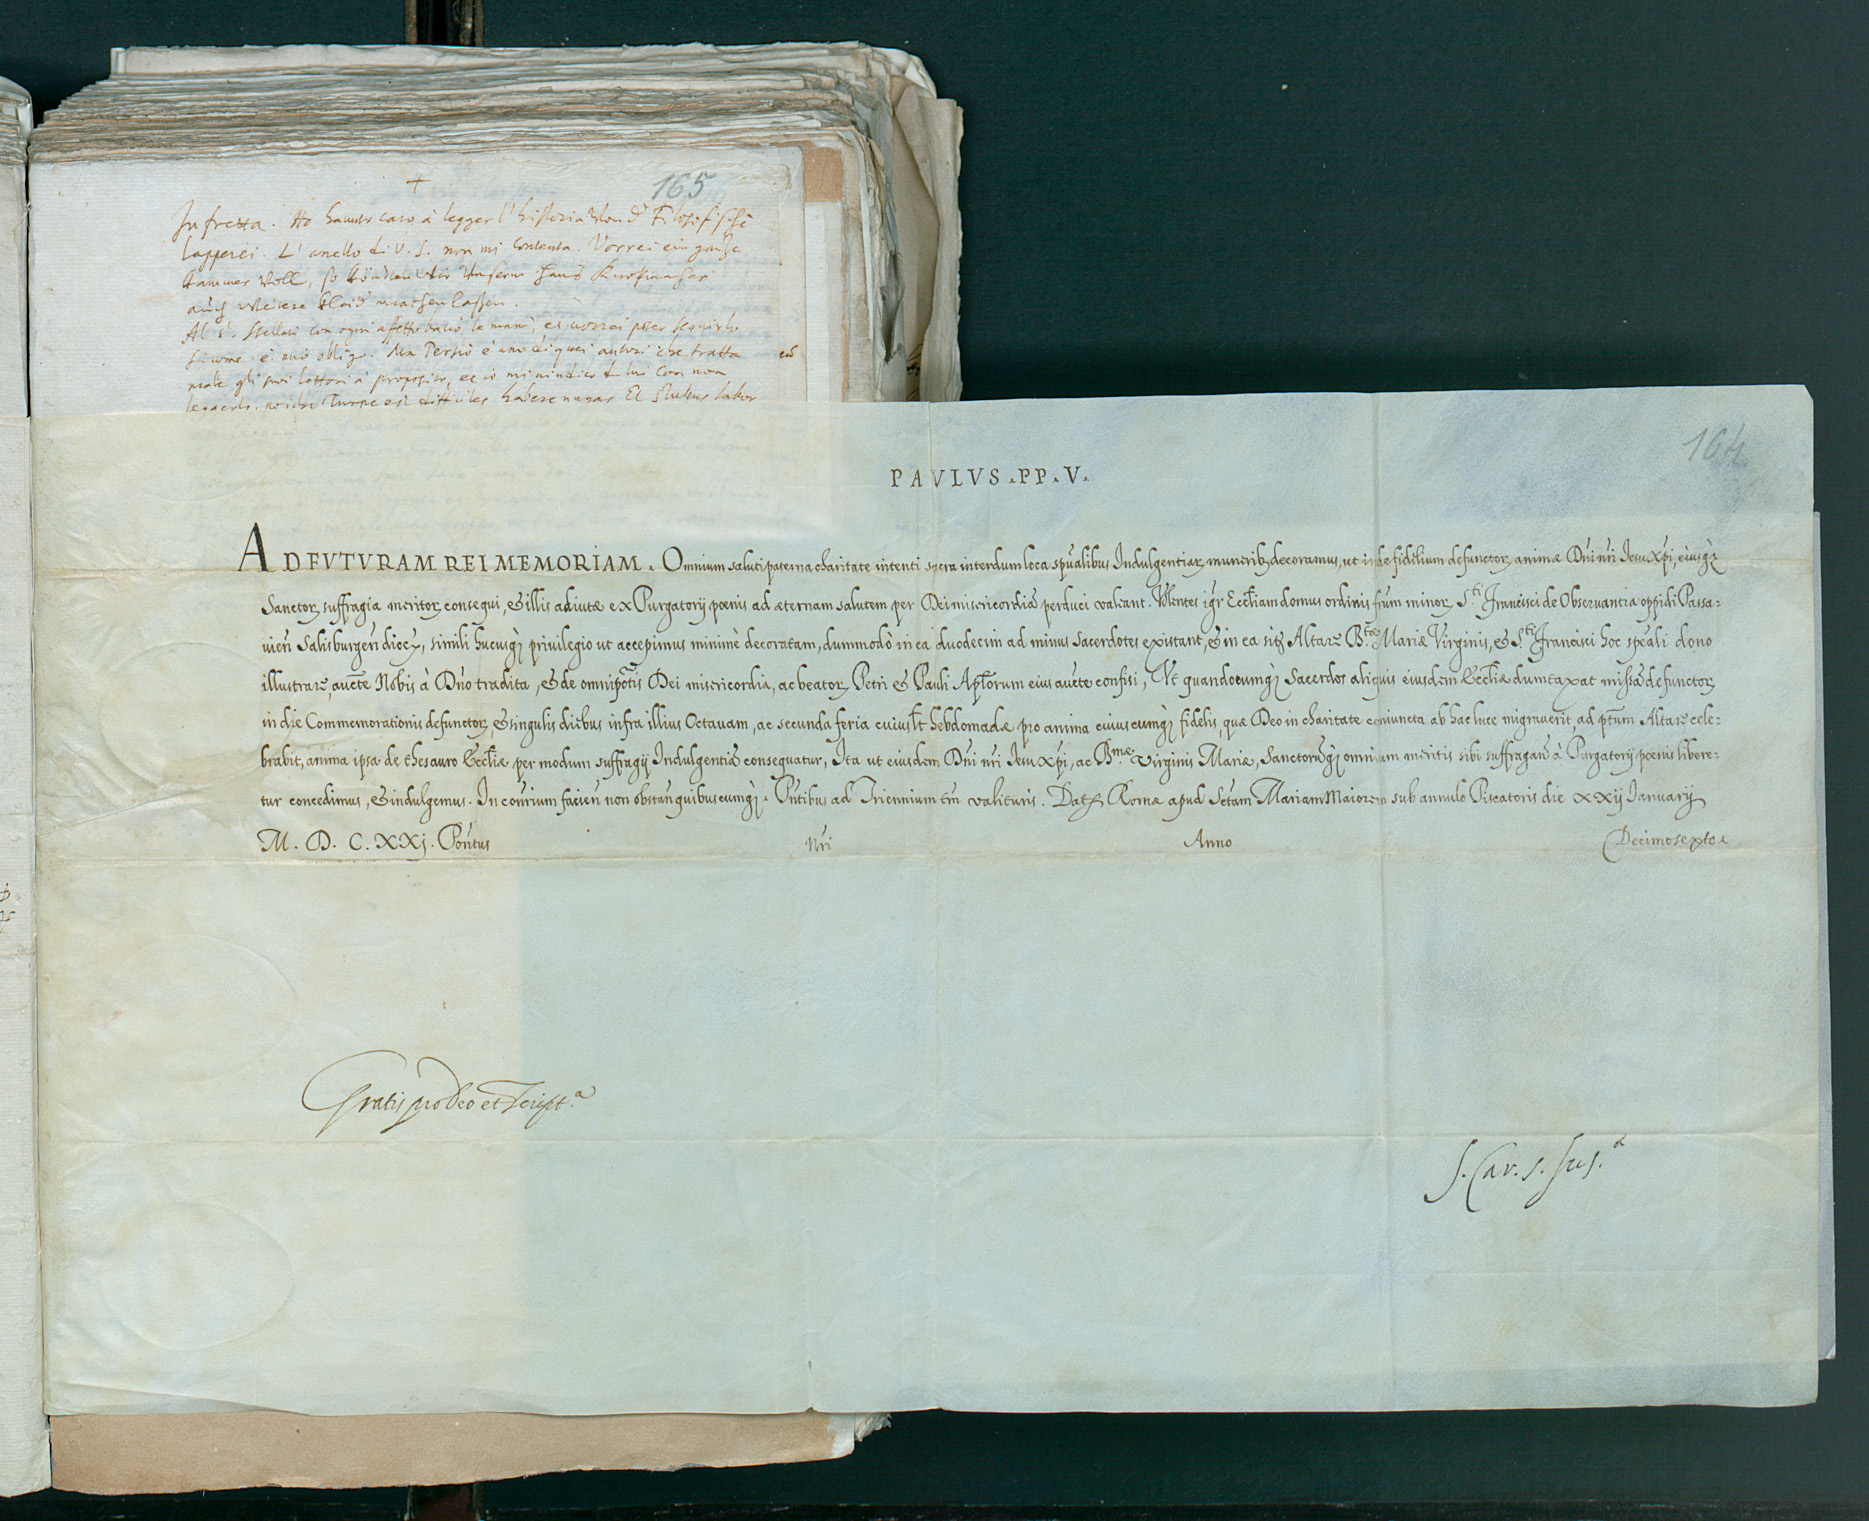 165
Infretta. Ho hauuto caro à legger l'historia
L'anello di V. S. non mi contenta. Vorrei ein gantze
Kammer voll, so
auch kleid machen lassen.
Al S.r Stellati con ogni affetto bacio le mani, et vorrei poter seruirlo
si come è mio obligo. Ma Persio è uno di quei autori che tratta
male gli suoi lettori à proposito, et io mi uindico di lui con non
Turpe est difficiles habere nugas Et stultus labor
164
PAVLVS . PP . V .
AD FVTVRAM REI MEMORIAM . Omnium saluti paterna charitate intenti sacra interdum loca spũalibus Indulgentiar, munerib, decoramus, ut inde fidelium defunctor, animæ Dñi nri Iesu Xpi, eiusq,
Sanctor, suffragia meritor, consequi, & illis adiutæ ex Purgatorij pœnis ad æternam salutem per Dei misericordiã perduci valeant. Volentes igr Eccliam domus ordinis frum minor, S.ti Francisci de Obseruantia oppidi Passa-
uien Salisburgen dioc, simili hucusq, priuilegio ut accepimus minimè decoratam, dummodò in ea duodecim ad minus Sacerdotes existant, & in ea sit, Altare B.tæ Mariæ Virginis, & S.ti Francisci hoc speãli dono
illustrare, aucte Nobis à Dño tradita, & de omnipotis Dei misericordia, ac beator, Petri & Pauli Aplorum eius aucte confisi, Vt quandocumq, Sacerdos aliquis eiusdem Eccliæ dumtaxat missã defunctor,
in die Commemorationis defunctor, & singulis diebus infra illius Octauam, ac secunda feria cuiuslt hebdomadæ pro anima cuiuscumq, fidelis, quæ Deo in charitate coniuncta ab hac luce migrauerit, ad ptum Altare cele-
brabit, anima ipsa de thesauro Eccliæ per modum suffragij Indulgentiã consequatur, Ita ut eiusdem Dñi nri Iesu Xpi, ac B.mæ Virginis Mariæ, Sanctorũq, omnium meritis sibi suffragan à Purgatorij pœnis libere-
tur concedimus, & indulgemus. In conrium facien non obstan quibuscumq,. Pntibus ad Triennium tm valituris. Dat, Romæ apud Sctam Mariam Maiorem sub annulo Piscatoris die xxij Ianuarij
M. D. C. XXj. Pontus nri Anno Decimosexto.
Gratis pro Deo et script.a
S. Cav. S. Sus.a